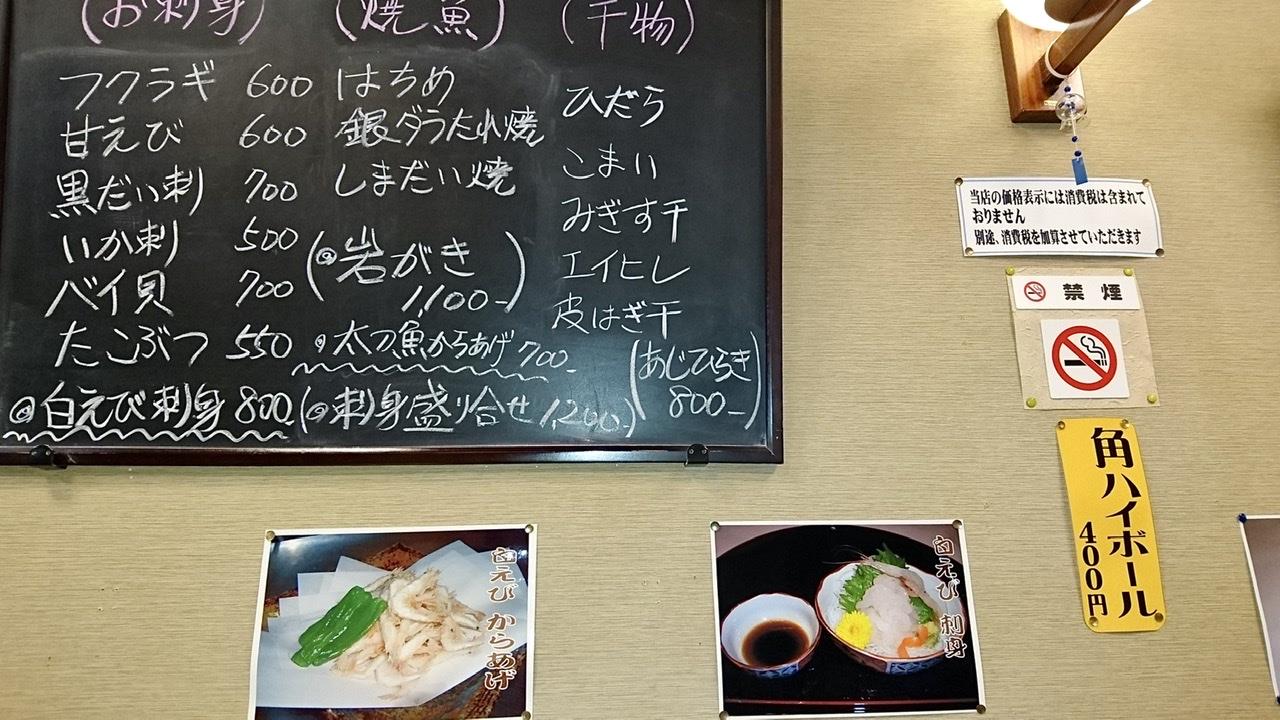 (お刺身)
フクラギ 600
甘えび 600
黒だい刺 700
いか刺 500
バイ貝 700
たこぶつ 550
白えび刺身 800
(焼魚)
はちめ
銀ダラうたれ焼
しまだい焼
(岩がき
1,100-)
太刀魚からあげ 700-
(刺身盛り合せ 1,200)
(干物)
ひだら
こまい
みぎす干
エイヒレ
皮はぎ干
(あじひらき
800-)
当店の価格表示には消費税は含まれて
おりません
別途、消費税を加算させていただきます
禁煙
角ハイボール
400円
白えび からあげ
白えび 刺身